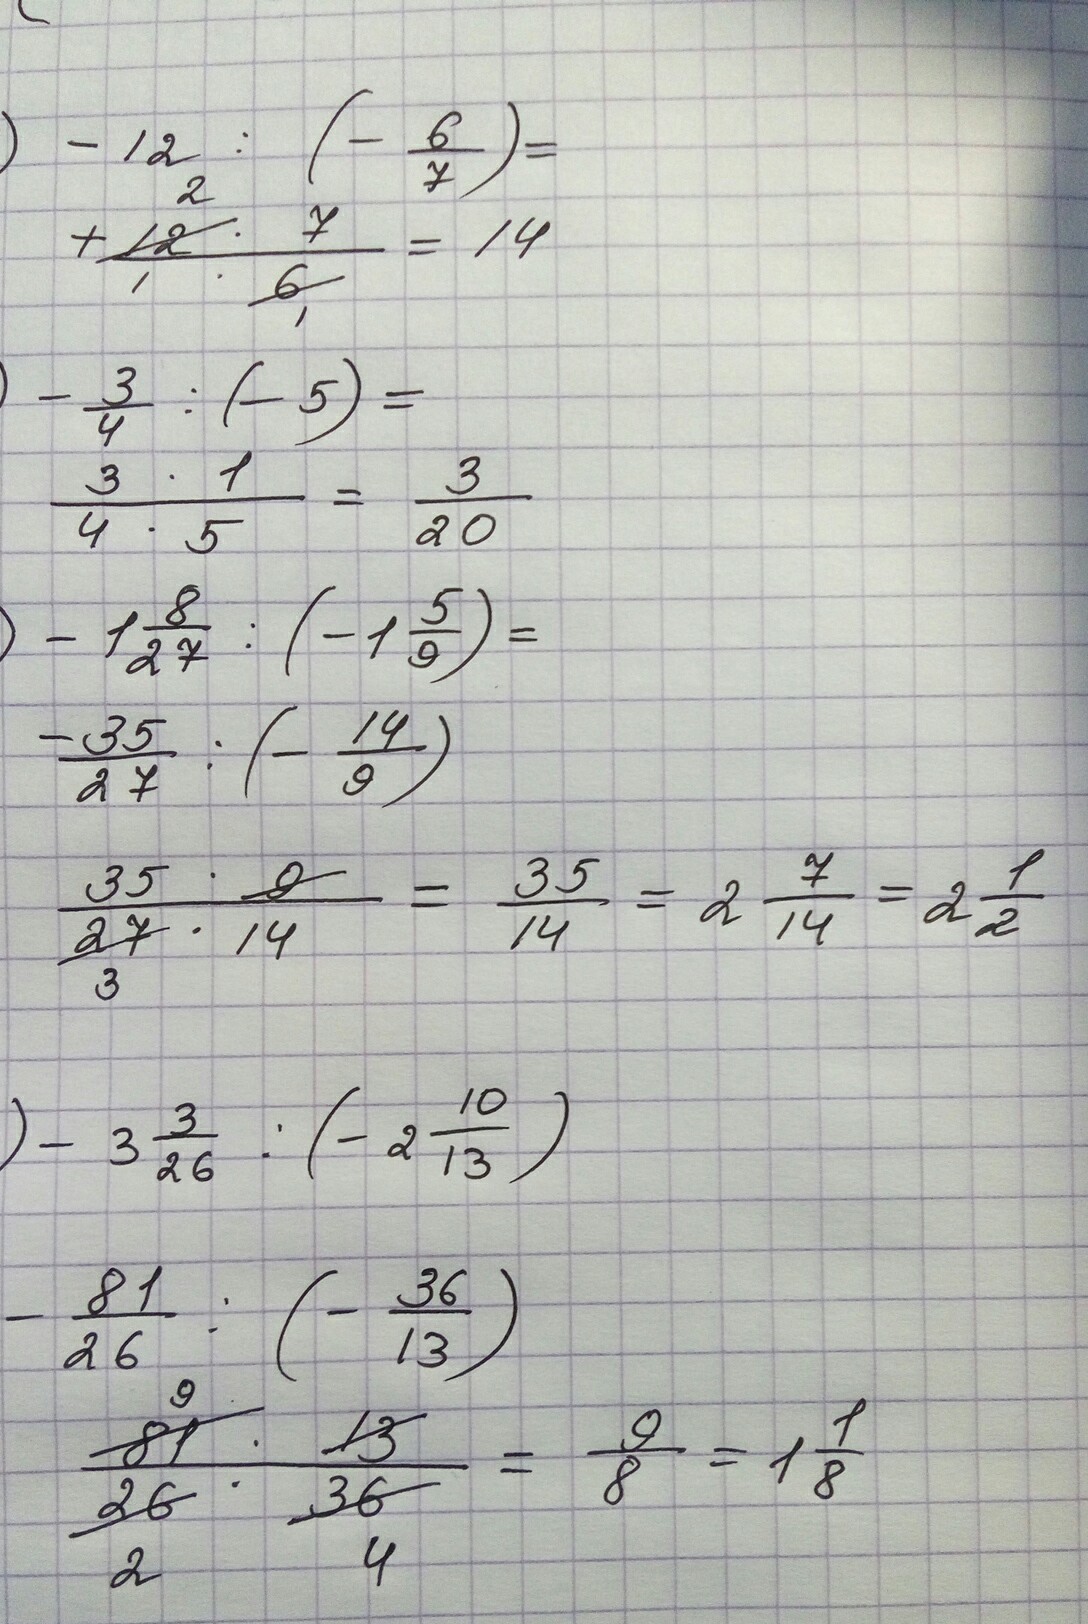 ) - 12 : (- 6/7) =
+ 12 2 · 7 / 1 · 6 1 = 14
) - 3/4 : (- 5) =
3 · 1 / 4 · 5 = 3/20
) - 1 8/27 : (- 1 5/9) =
- 35/27 : (- 14/9)
35 · 9 / 27 3 · 14 = 35/14 = 2 7/14 = 2 1/2
) - 3 3/26 : (- 2 10/13)
- 81/26 : (- 36/13)
81 9 · 13 / 26 2 · 36 4 = 9/8 = 1 1/8